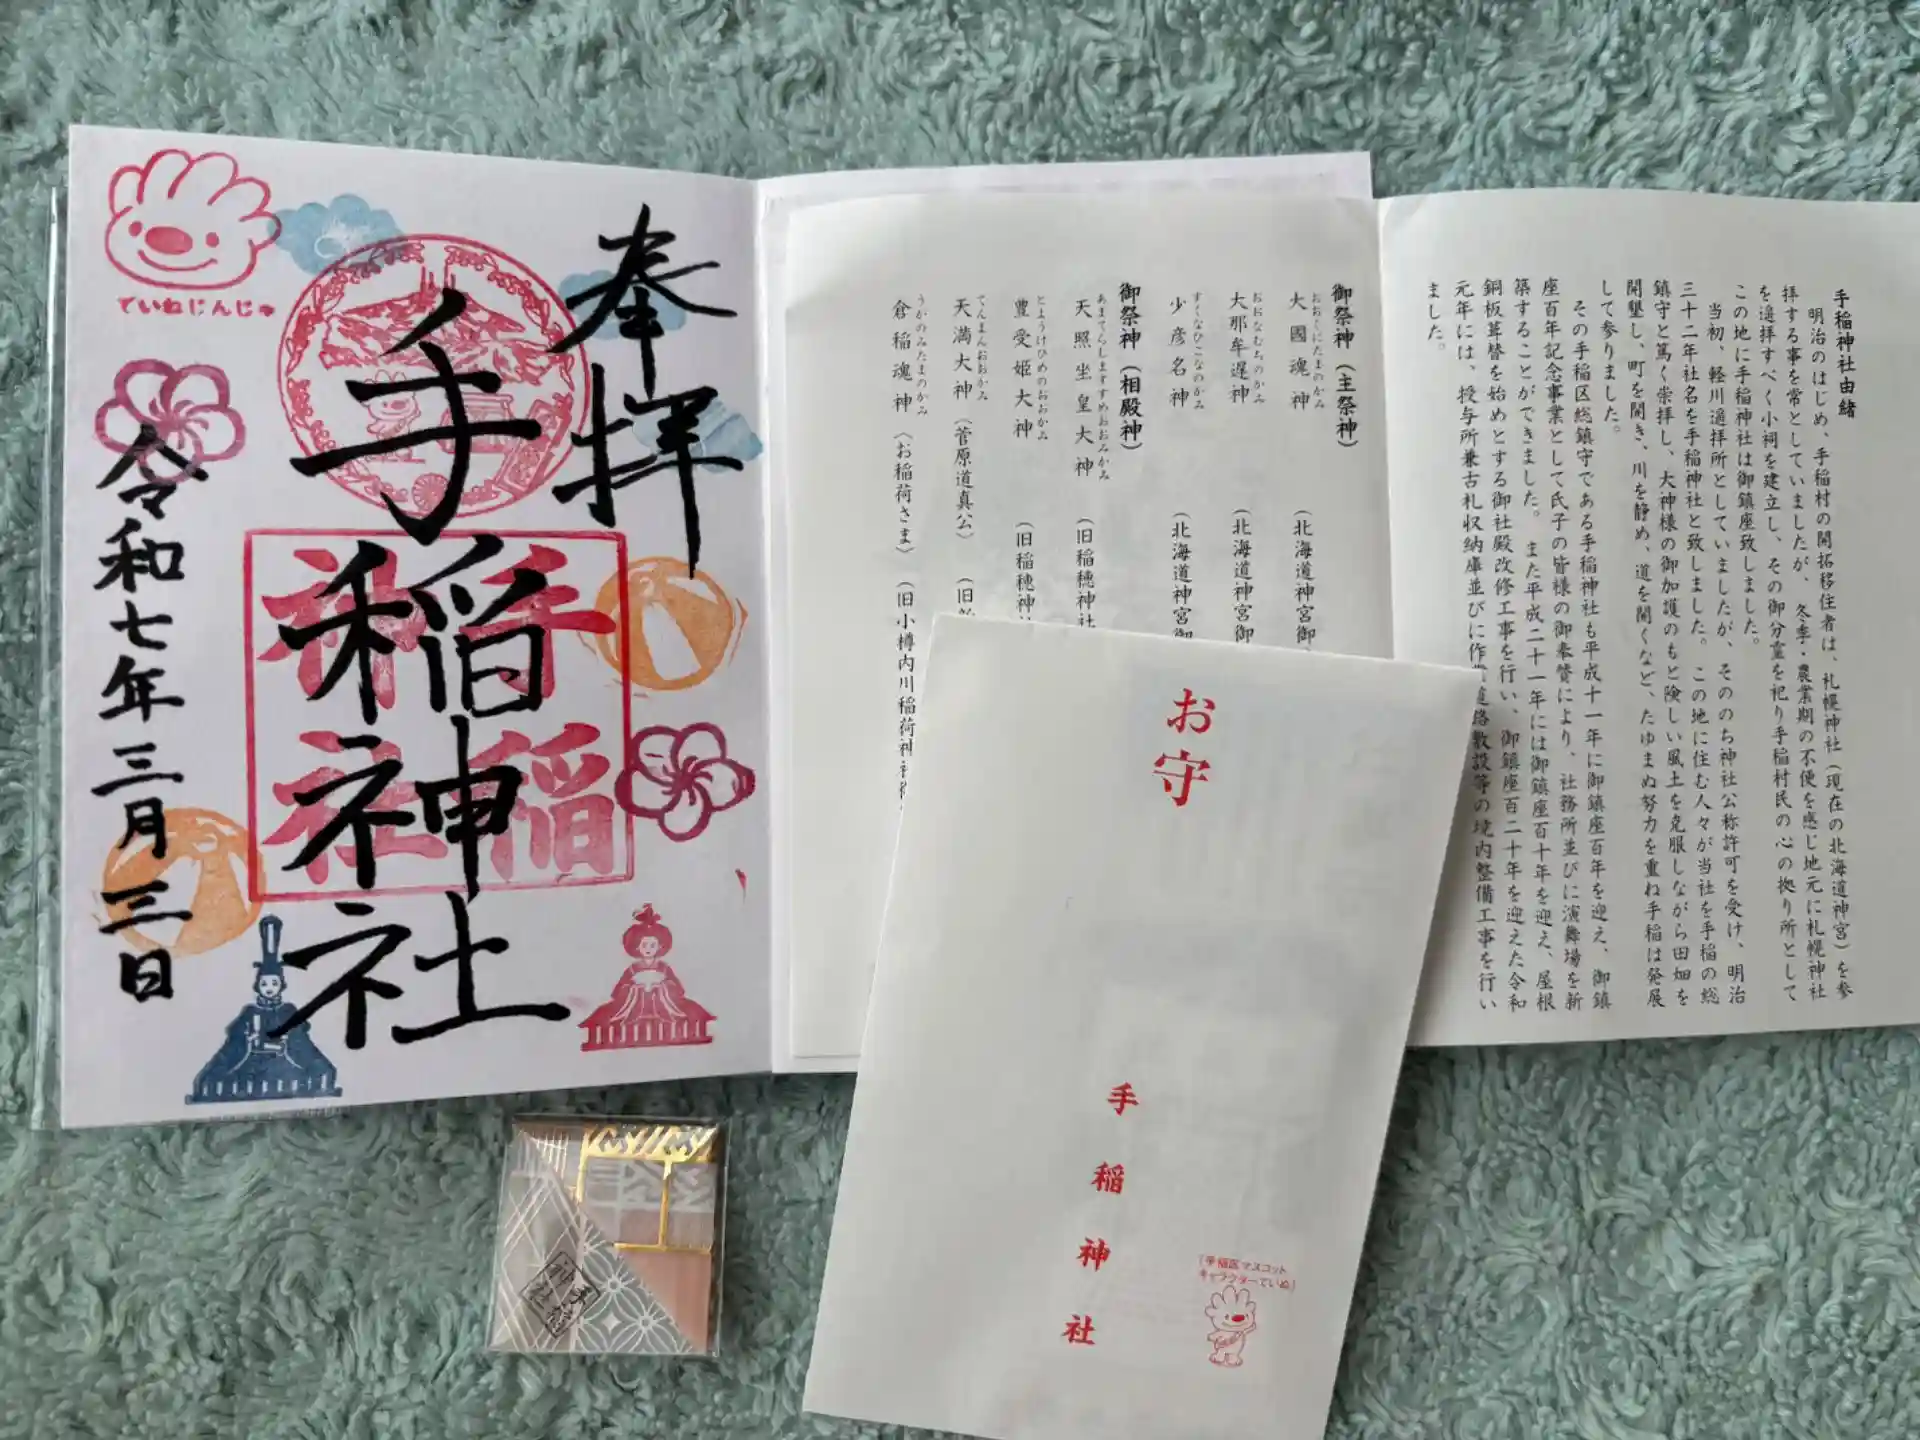 奉拝
手稲神社
令和七年三月三日
ていねじんじゃ
手稲
神社
御祭神（主祭神）
大國魂神 おおくにたまのかみ （北海道神宮御
大那牟遅神 おおなむちのかみ （北海道神宮御
少彦名神 すくなひこなのかみ （北海道神宮御
御祭神（相殿神）
天照坐皇大神 あまてらしますすめおおみかみ （旧稲穂神社
豊受姫大神 とようけひめのおおかみ （旧稲穂神
天満大神 てんまんおおかみ （菅原道真公） （旧
倉稲魂神 うかのみたまのかみ 〈お稲荷さま〉 （旧小樽内川稲荷神社
手稲神社由緒
明治のはじめ、手稲村の開拓移住者は、札幌神社（現在の北海道神宮）を参
拝する事を常としていましたが、冬季・農業期の不便を感じ地元に札幌神社
を遥拝すべく小祠を建立し、その御分霊を祀り手稲村民の心の拠り所として
この地に手稲神社は御鎮座致しました。
当初、軽川遥拝所としていましたが、そののち神社公称許可を受け、明治
三十二年社名を手稲神社と致しました。この地に住む人々が当社を手稲の総
鎮守と篤く崇拝し、大神様の御加護のもと険しい風土を克服しながら田畑を
開墾し、町を開き、川を静め、道を開くなど、たゆまぬ努力を重ね手稲は発展
して参りました。
その手稲区総鎮守である手稲神社も平成十一年に御鎮座百年を迎え、御鎮
座百年記念事業として氏子の皆様の御奉賛により、社務所並びに演舞場を新
築することができました。また平成二十一年には御鎮座百十年を迎え、屋根
銅板葺替を始めとする御社殿改修工事を行い、御鎮座百二十年を迎えた令和
元年には、授与所兼古札収納庫並びに作業道路敷設等の境内整備工事を行い
ました。
お守
手稲神社
「手稲区マスコット
キャラクターていぬ」
手稲
神社